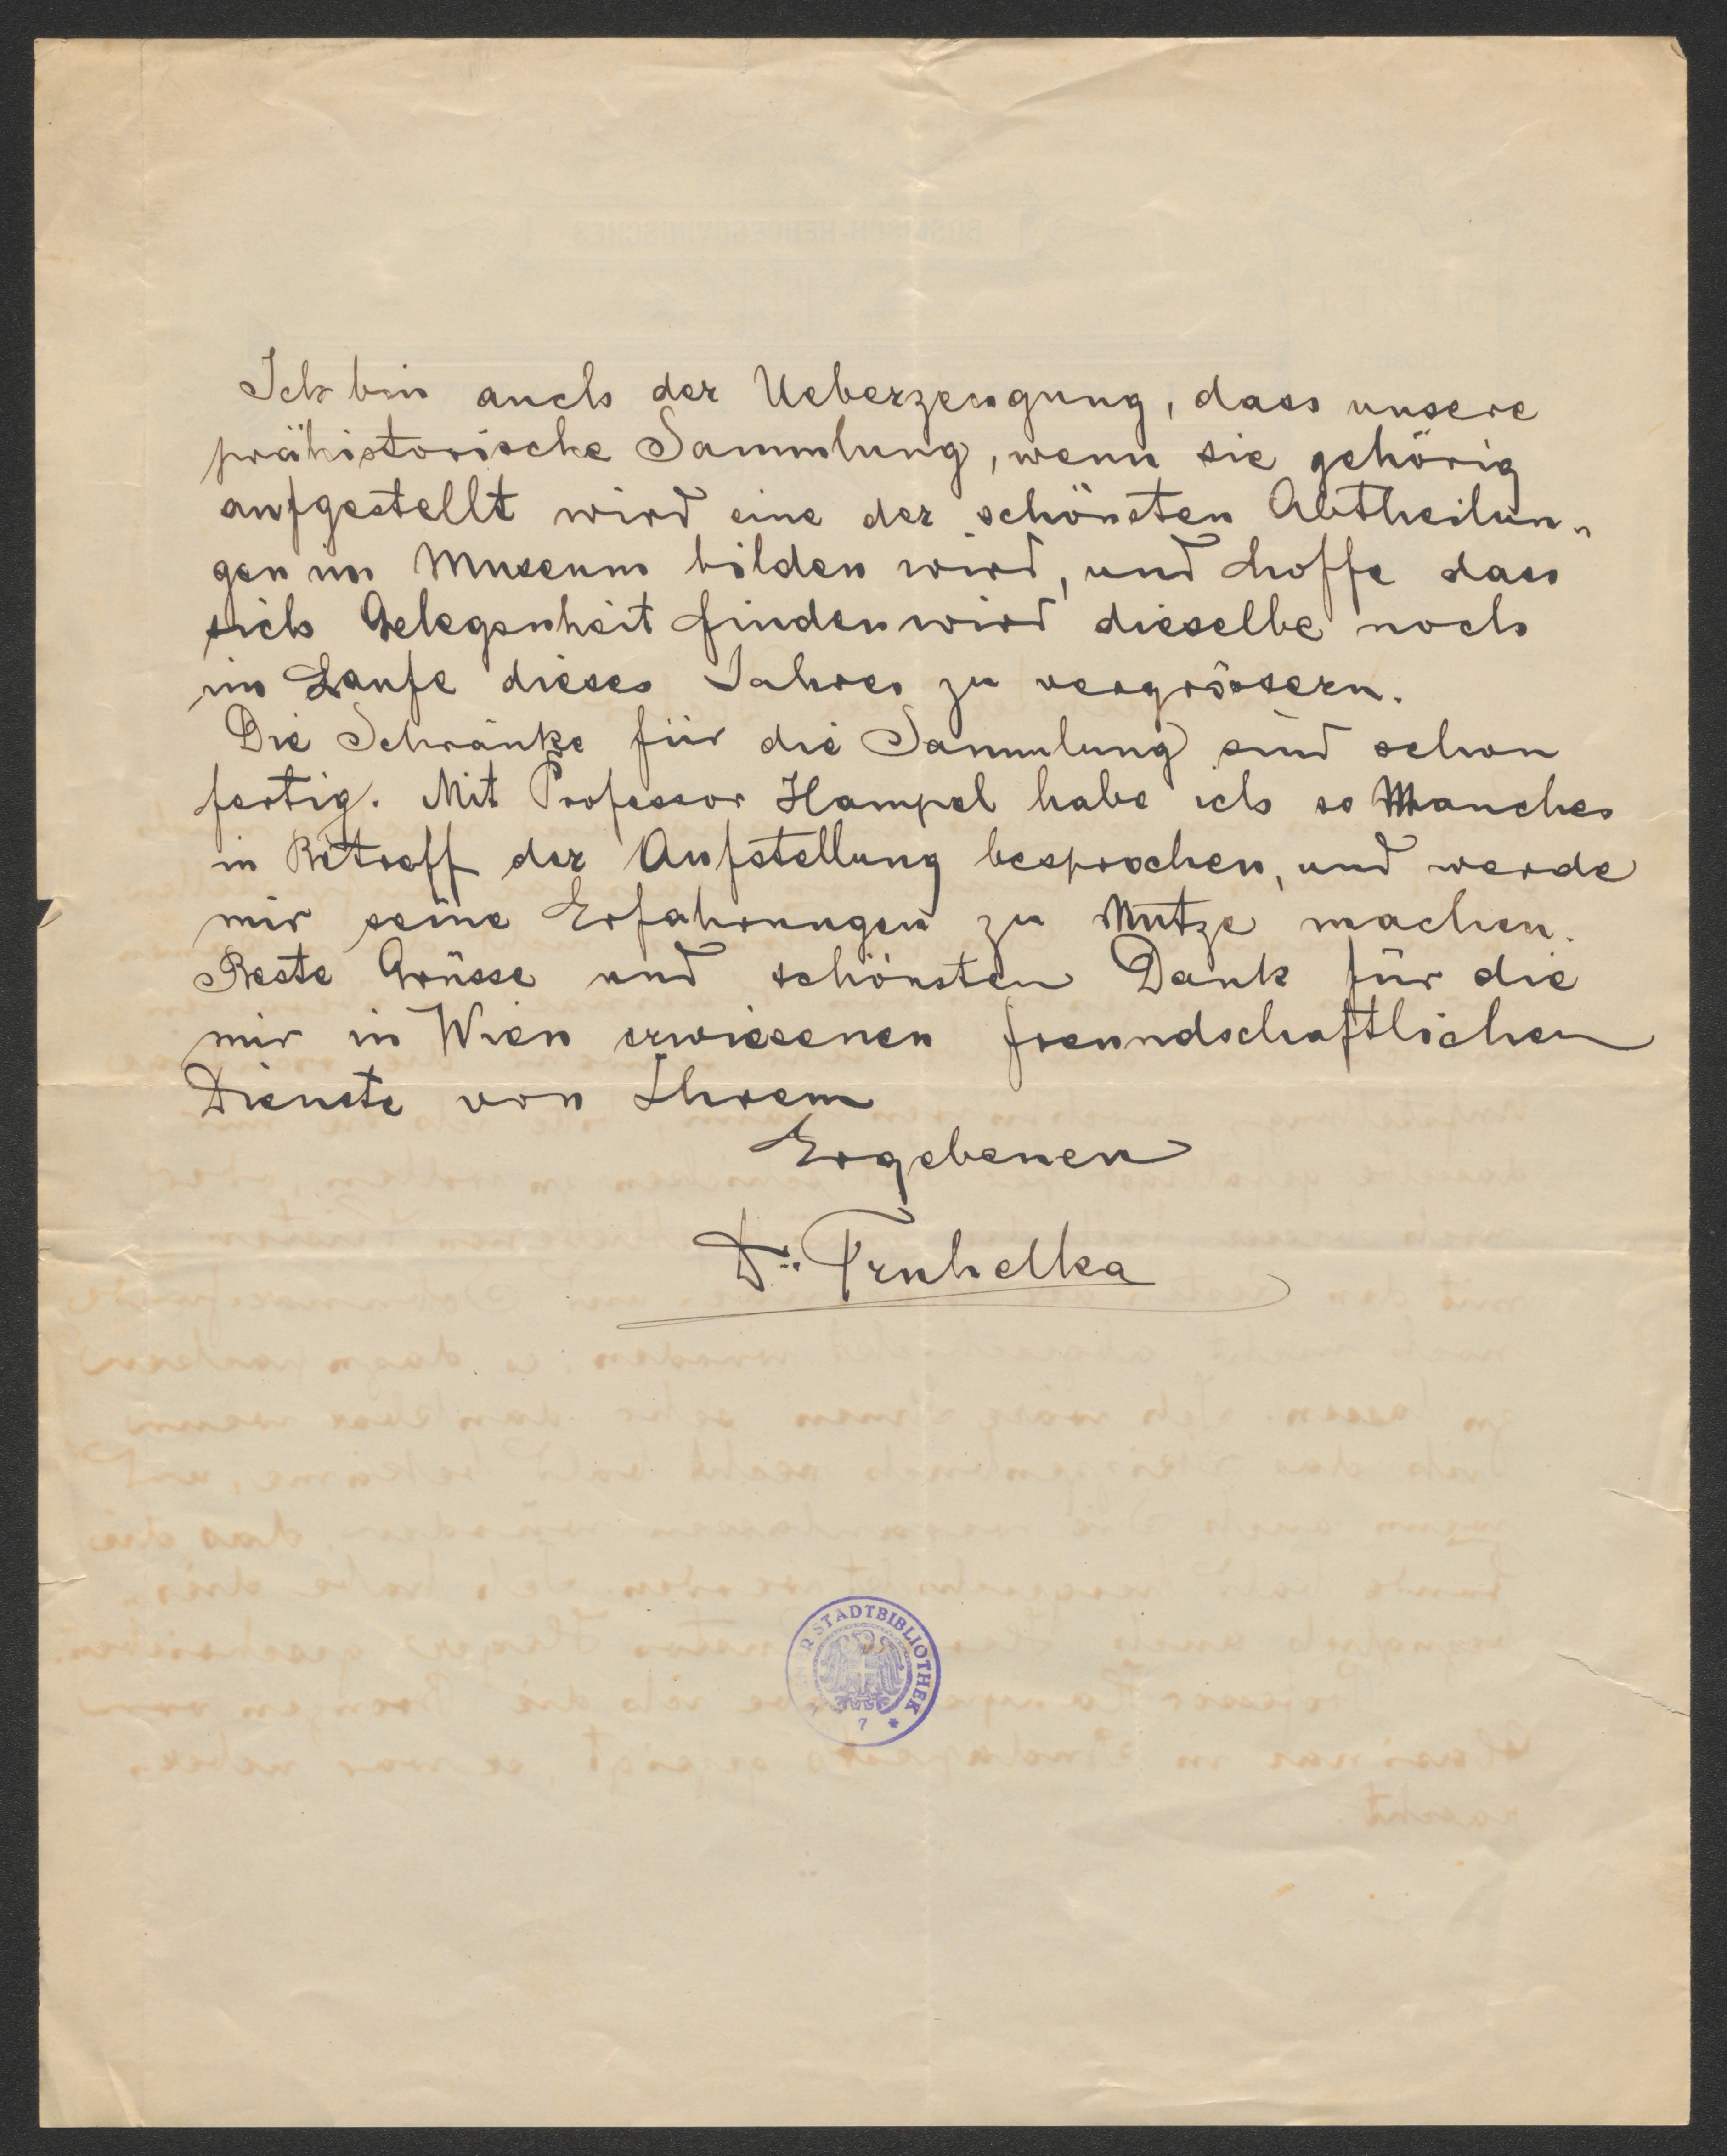 Ich bin auch der Ueberzeugung, dass unsere
prähistorische Sammlung, wenn sie gehörig
aufgestellt wird eine der schönsten Abtheilun-
gen im Museum bilden wird, und hoffe dass
sich Gelegenheit finden wird dieselbe noch
im Laufe dieses Jahres zu vergrössern.
Die Schränke für die Sammlung sind schon
fertig. Mit Professor Hampel habe ich so Manches
in Betreff der Aufstellung besprochen, und werde
mir seine Erfahrungen zu Nutze machen.
Beste Grüsse und schönsten Dank für die
mir in Wien erwiesenen freundschaftlichen
Dienste von Ihrem
Ergebenen
Dr. Truhelka
STADTBIBLIOTHEK
7 *